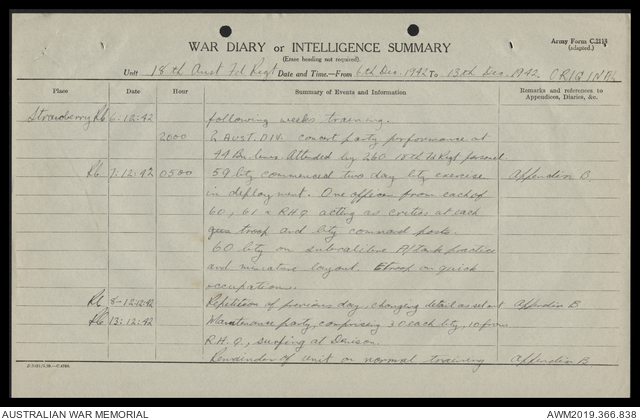 WAR DIARY or INTELLIGENCE SUMMARY
Army Form C.2118
(adapted.)
(Erase heading not required).
Unit 18th Aust Fd Regt Date and Time.—From 6th Dec. 1942 To 13th Dec. 1942 ORIGINAL
Place Date Hour Summary of Events and Information Remarks and references to Appendices, Diaries, &c.
Strawberry 6:12:42 following weeks training.
2000 2 AUST. DIV. concert party performance at
44 Bn. lines. Attended by 260 18th Fd Regt personel.
7:12:42 0500 59 bty commenced two day bty exercise Appendix B
in deployment. One officer from each of
60, 61 & R.H.Q acting as critics at each
gun troop and bty command posts.
60 bty on subcalibre A/tank practice
and miniature layout. E troop on quick
occupations.
8-12:12:42 Repetition of previous day, changing detail as set out Appendix B.
13:12:42 Maintenance party, comprising 30 each bty, 10 from
R.H.Q., surfing at Denison.
Remainder of unit on normal training Appendix B.
AUSTRALIAN WAR MEMORIAL
AWM2019.366.838